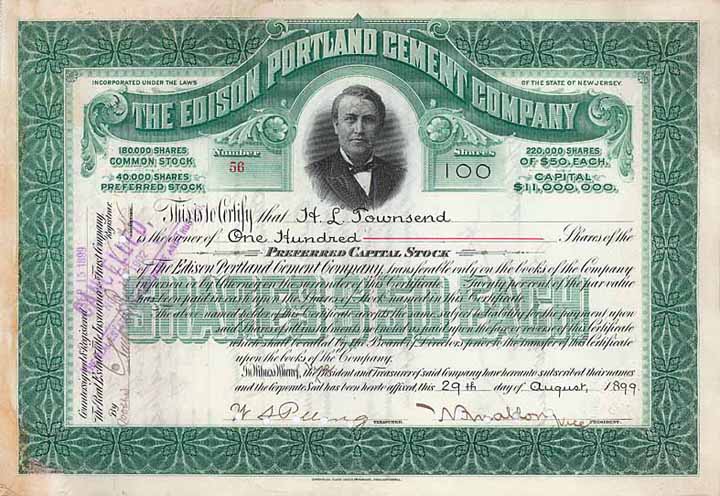 THE EDISON PORTLAND CEMENT COMPANY
INCORPORATED UNDER THE LAWS
OF THE STATE OF NEW JERSEY.
180,000 SHARES
COMMON STOCK
40,000 SHARES
PREFERRED STOCK
Number
56
Shares
100
220,000 SHARES
OF $50. EACH.
CAPITAL
$11,000,000.
This is to Certify that H. L. Townsend
is the owner of One Hundred Shares of the
PREFERRED CAPITAL STOCK
of The Edison Portland Cement Company, transferable only on the books of the Company
in person or by Attorney on the surrender of this Certificate. Twenty per cent of the par value
has been paid in cash upon the Shares of Stock named in this Certificate.
The above named holder of this Certificate accepts the same subject to liability for the payment upon
said Shares of all instalments not recited as paid upon the face or reverse of this Certificate
which shall be called by the Board of Directors prior to the transfer of this Certificate
upon the books of the Company.
SHARES $50 EACH
In Witness Whereof, the President and Treasurer of said Company have hereunto subscribed their names
and the Corporate Seal has been hereto affixed, this 29th day of August, 1899.
TREASURER.
Vice PRESIDENT.
Countersigned and Registered
The Real Estate Trust Company
By
Registrar
15 1899